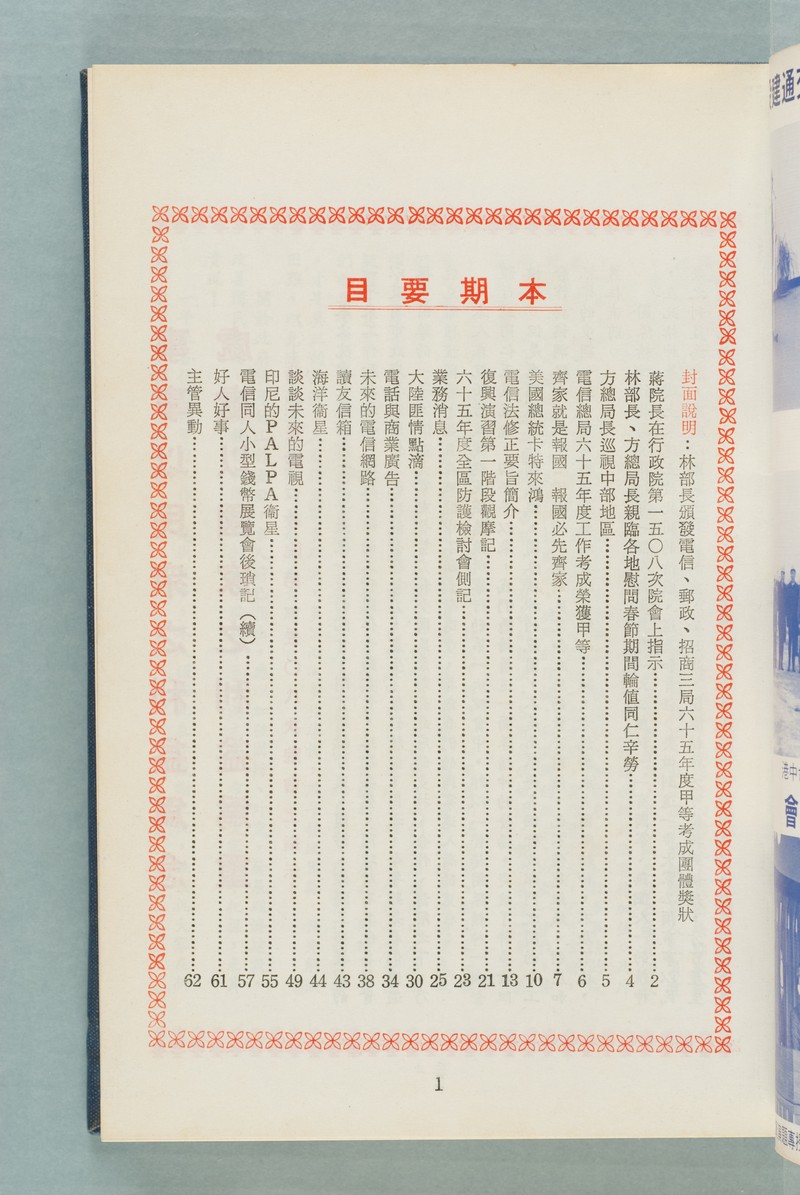 本期要目
封面說明：林部長頒發電信、郵政、招商三局六十五年度甲等考成團體獎狀
蔣院長在行政院第一五〇八次院會上指示⋯⋯2
林部長、方總局長親臨各地慰問春節期間輪值同仁辛勞⋯⋯4
方總局長巡視中部地區⋯⋯5
電信總局六十五年度工作考成榮獲甲等⋯⋯6
齊家就是報國　報國必先齊家⋯⋯7
美國總統卡特來鴻⋯⋯10
電信法修正要旨簡介⋯⋯13
復興演習第一階段觀摩記⋯⋯21
六十五年度全區防護檢討會側記⋯⋯23
業務消息⋯⋯25
大陸匪情點滴⋯⋯30
電話與商業廣告⋯⋯34
未來的電信網路⋯⋯38
讀友信箱⋯⋯43
海洋衞星⋯⋯44
談談未來的電視⋯⋯49
印尼的PALPA衞星⋯⋯55
電信同人小型錢幣展覽會後瑣記（續）⋯⋯57
好人好事⋯⋯61
主管異動⋯⋯62
1
建通
港中
會